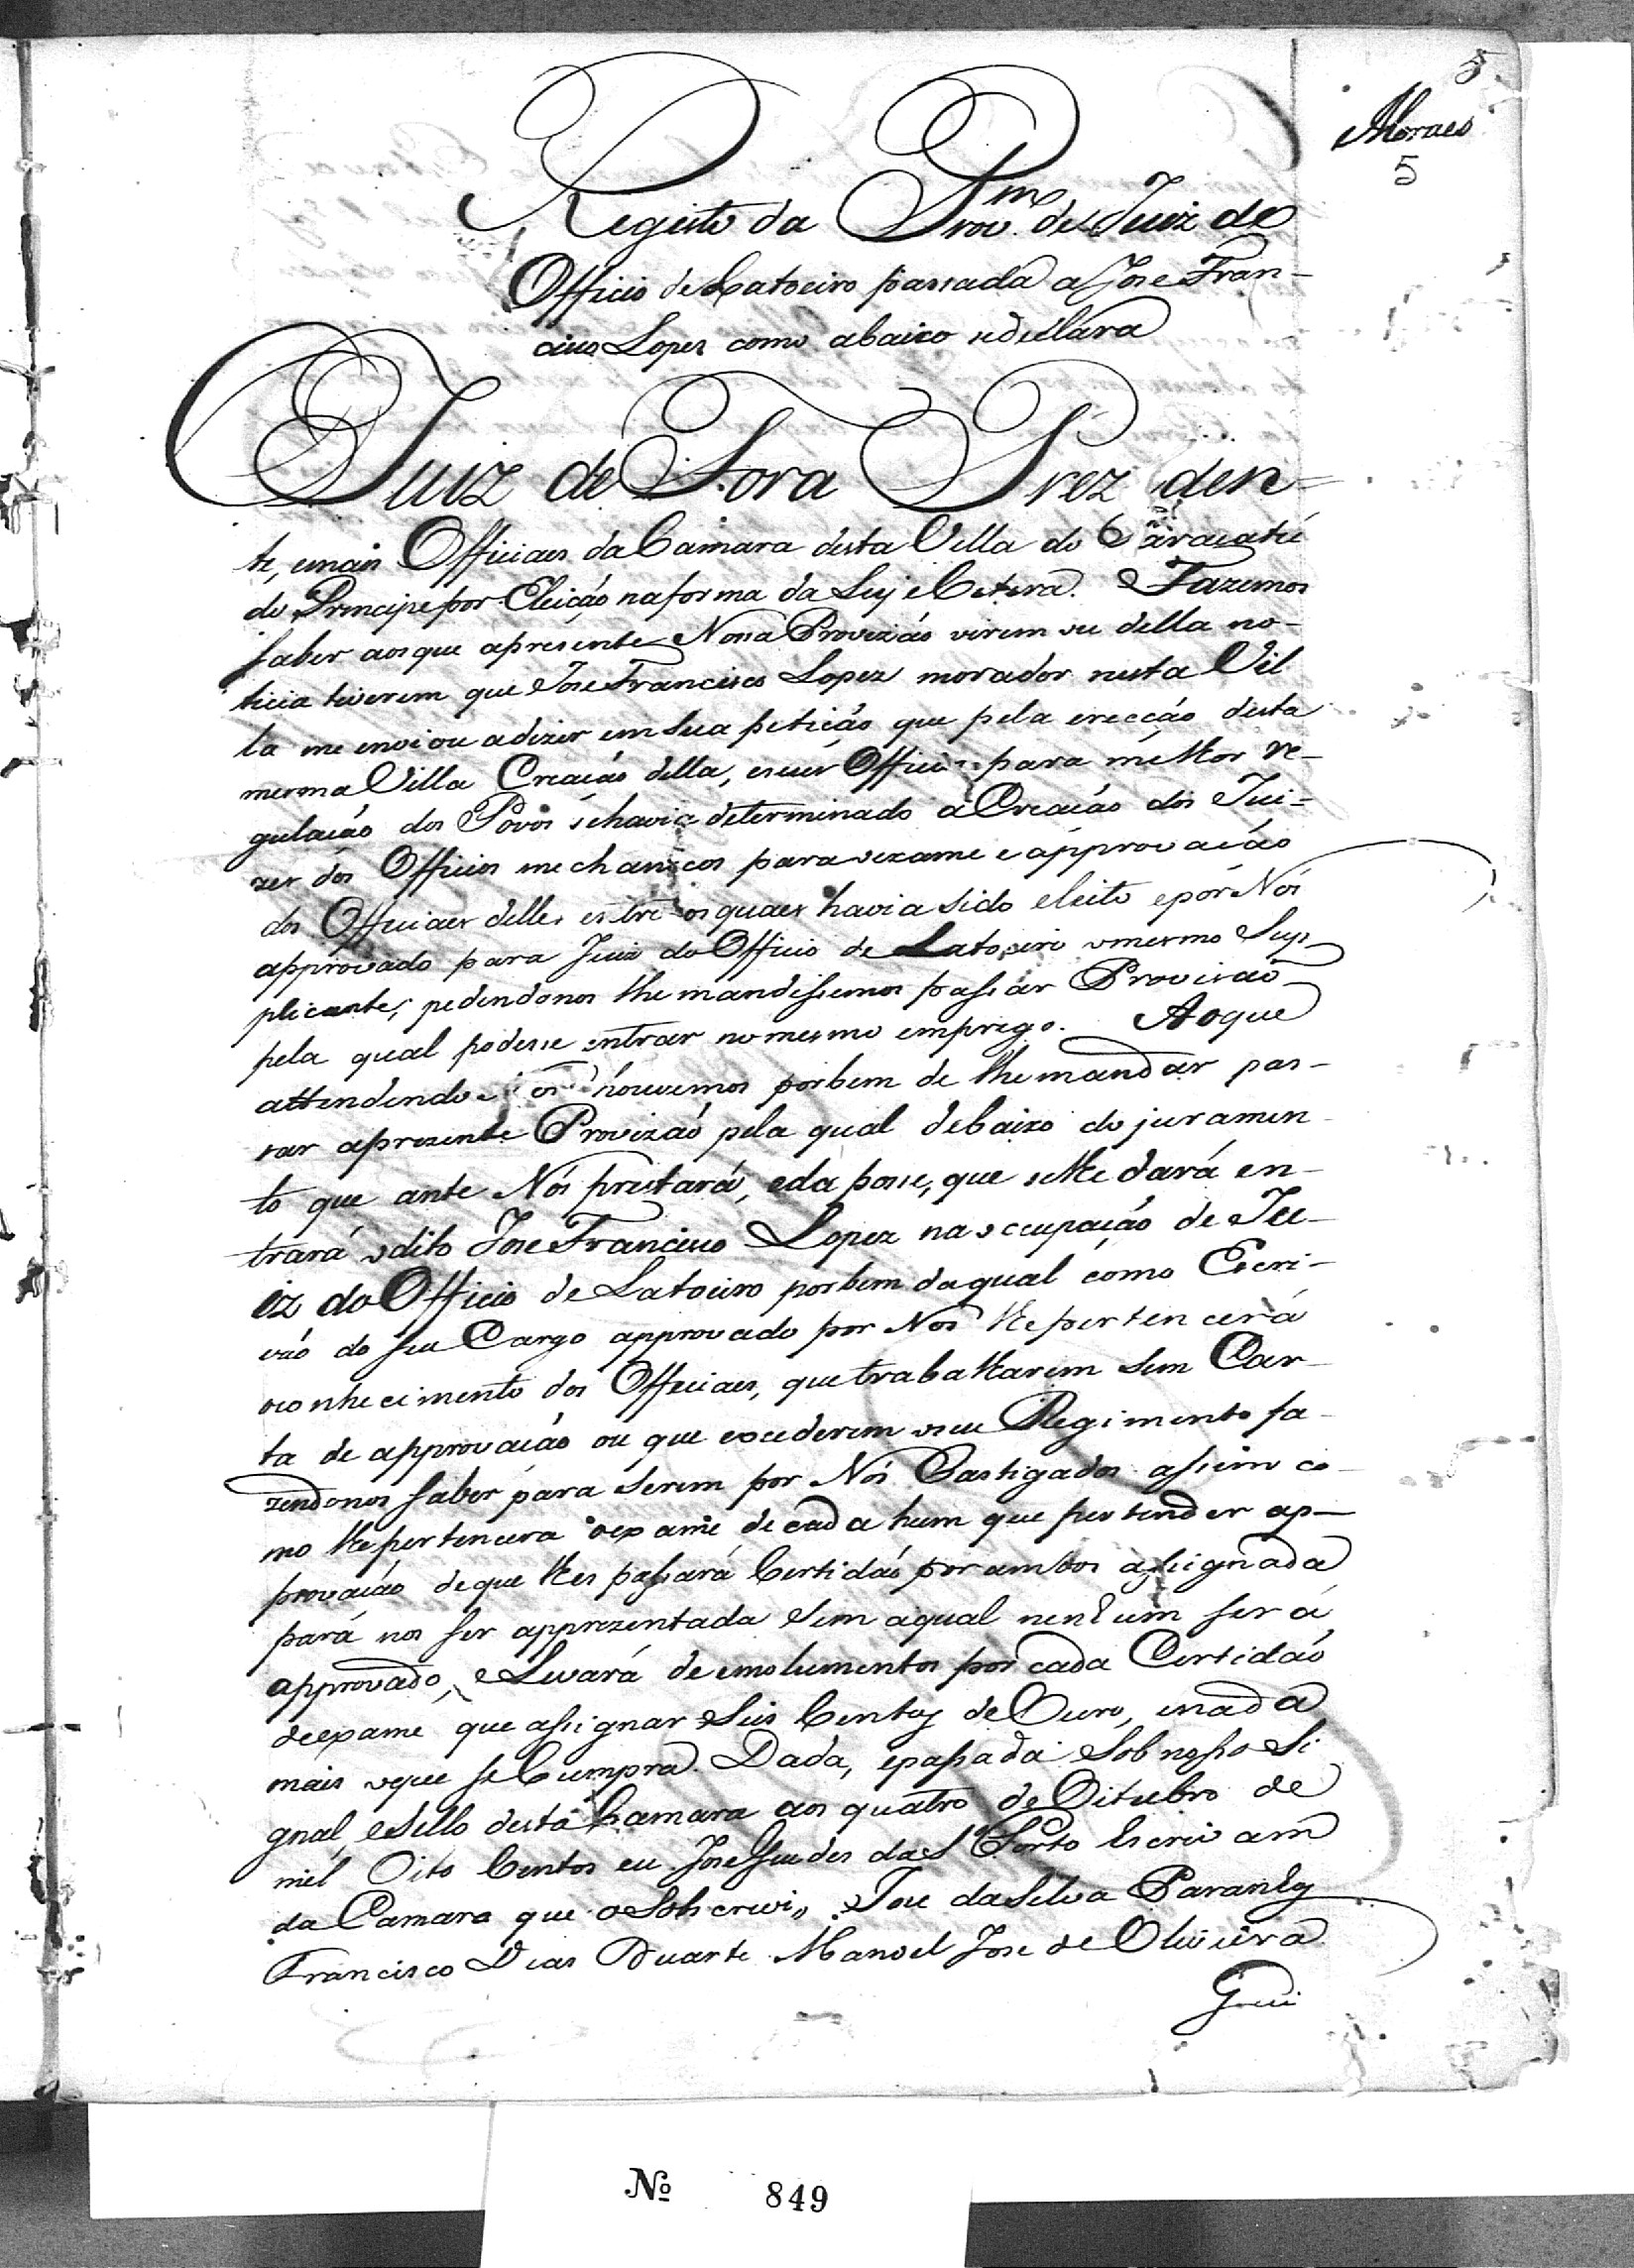 5
Moraes
5
Registo da Prov.m de Juiz de
Officio de Latoeiro passada a Jose Fran-
cisco Lopes como abaixo se declara
Juiz de Fora Preziden-
te, emais Officiaes da Camara desta Villa do Paracatú
do Principe por Eleição naforma da Ley e Cetera. Fazemos
saber aosque apresente Nossa Provizão virem ou della no-
ticia tiverem que Jose Francisco Lopez morador nesta Vil
la me enviou adizer em sua petição que pela erecção desta
mesma Villa Creação della, eseus Officios para milhor re-
gulação dos Póvos sehavia determinado a Creação dos Jui=
zes dos Officios mechanicos para oexame e approvação
dos Officiaes delles entre osquaes havia sido eleito epor Nós
approvado para Juiz do Officio de Latoeiro omesmo Sup
plicante, pedindonos lhe mandassemos passar Provisão
pela qual podesse entrar nomesmo emprego. Aoque
attendendo houvemos porbem de lhe mandar pas-
sar aprezente Provizão pela qual debaixo do juramen-
to que ante Nós prestará, eda posse, que selhe dará en-
trará odito Jose Francisco Lopez na occupação de Ju-
iz do Officio de Latoeiro porbem daqual como Escri-
vão do seu Cargo approvado por Nós lhe pertencerá
oconhecimento dos Officiaes, que trabalharem sem Car-
ta de approvação ou que excederem oseu Regimento fa-
zendonos saber para serem por Nós Castigados assim co-
mo lhe pertencera oexame de cada hum que pertender ap-
provação deque lhes passará Certidão por ambos assignada
pará nos ser apprezentada sem aqual nenhum será
approvado, eLevará de emolumentos por cada Certidão
deexame que assignar Seis Centos de Ouro, enada
mais oque se Cumpra. Dada, epassada Sob nosso Si
gnal, eSello desta Camara aos quatro de Oitubro de
mil Oito Centos eu Jose Guedes da S.a Porto Escrivam
da Camara que o Sobscrevi,, Jose da Silva Paranhos
Francisco Dias Duarte Manoel Jose de Oliveira
No 849